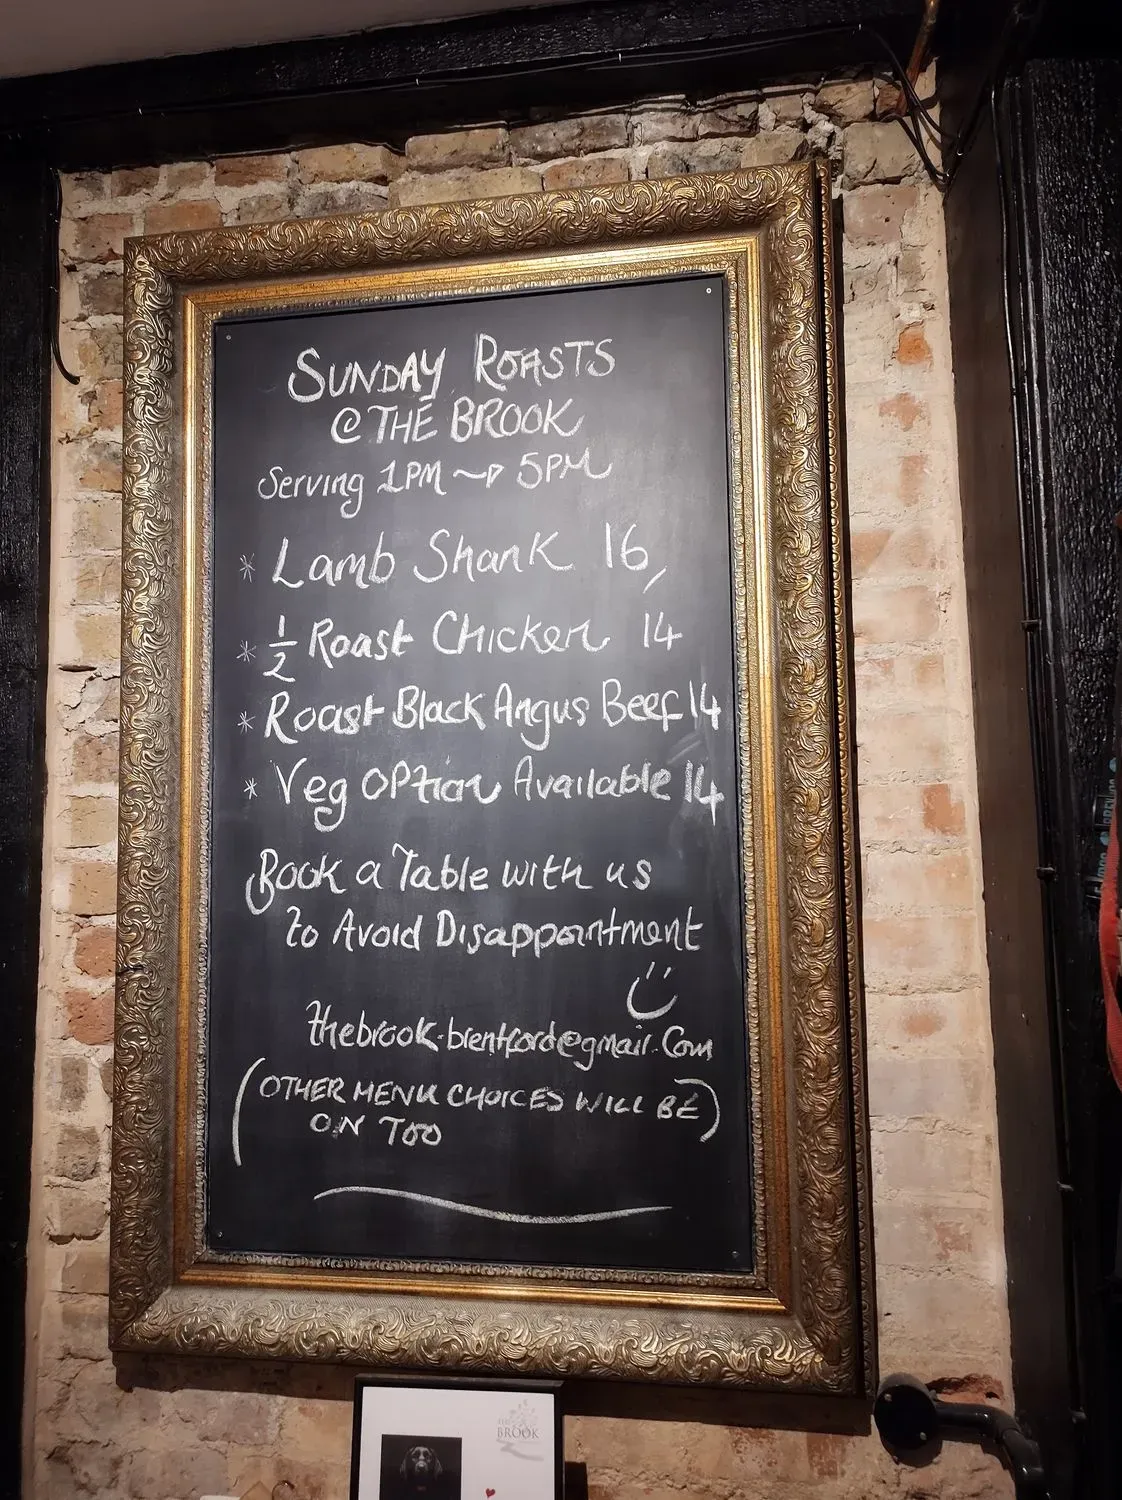 SUNDAY ROASTS
@ THE BROOK
Serving 1PM → 5PM
* Lamb Shank 16,
* ½ Roast Chicken 14
* Roast Black Angus Beef 14
* Veg Option Available 14
Book a Table with us
to Avoid Disappointment
thebrook.brentford@gmail.com
(OTHER MENU CHOICES WILL BE)
ON TOO
BROOK